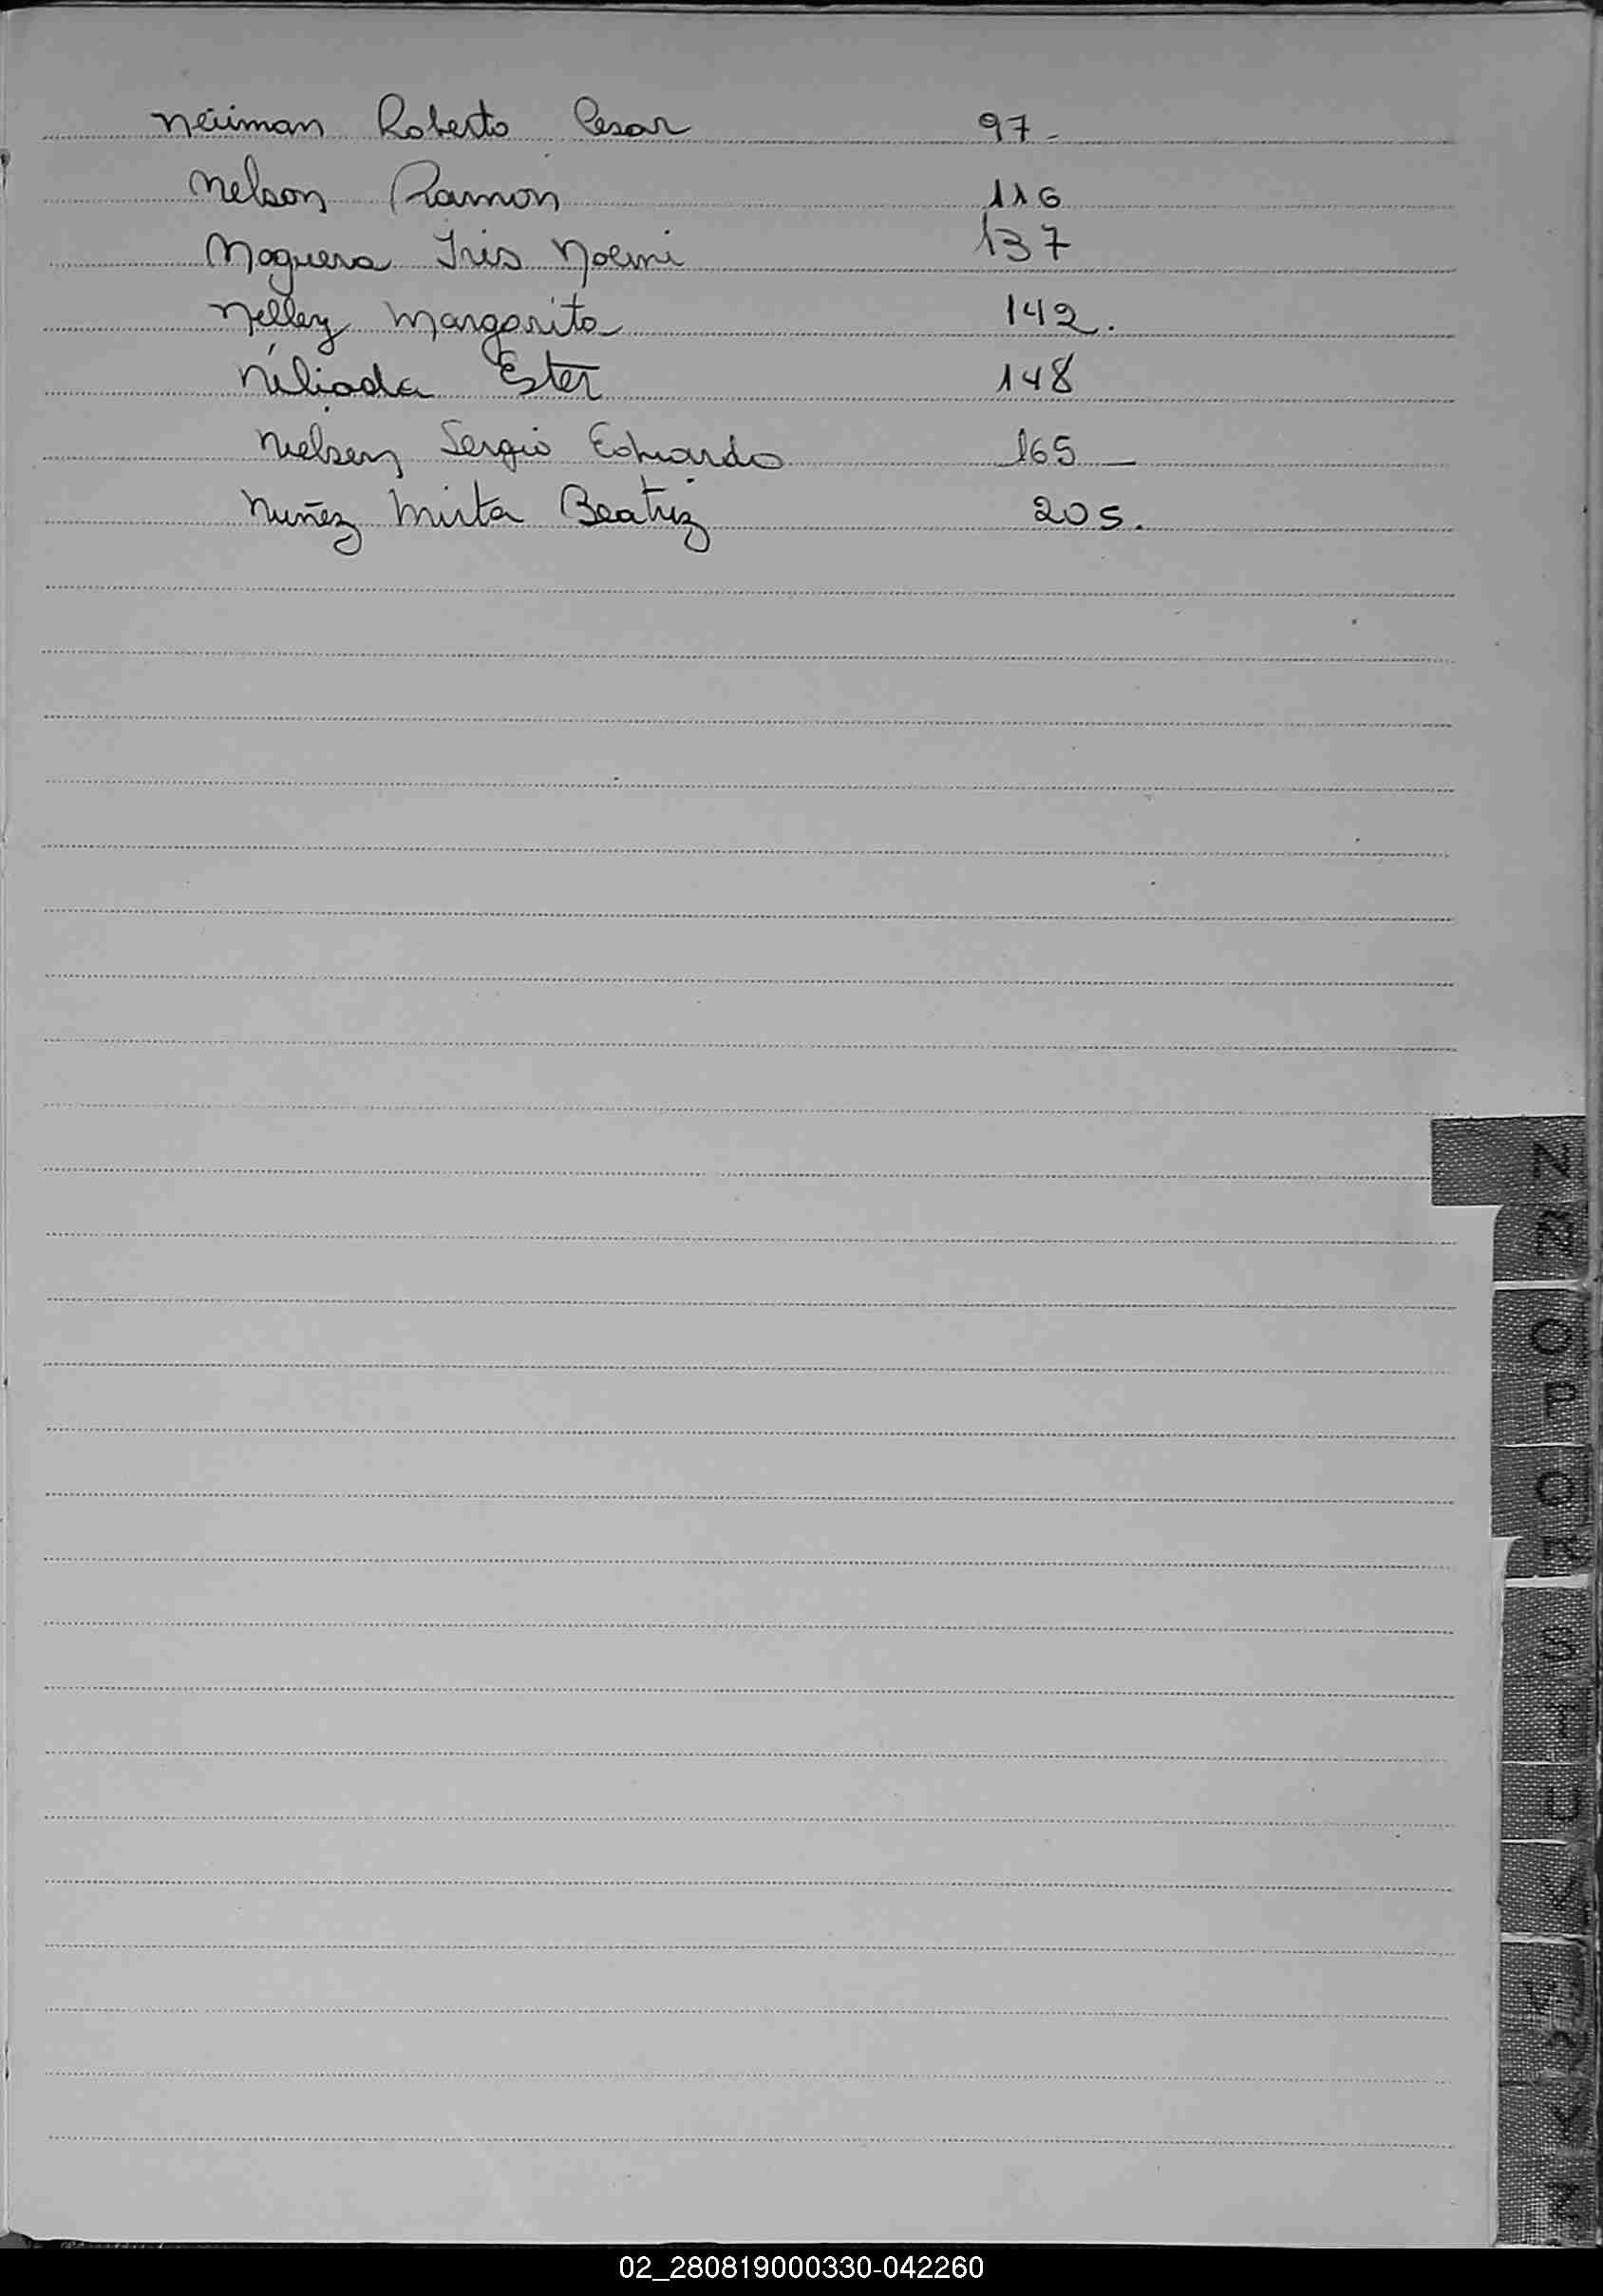 Neüman Roberto Cesar 97-
Nelson Ramon 116
Noguera Iris Noemi 137
Nelley Margarita 142.
Niliada Ester 148
Nielsen Sergio Eduardo 165-
Nuñez Mirta Beatriz 205.
N
Ñ
O
P
Q
R
S
T
U
V
X
Y
Z
02_280819000330-042260